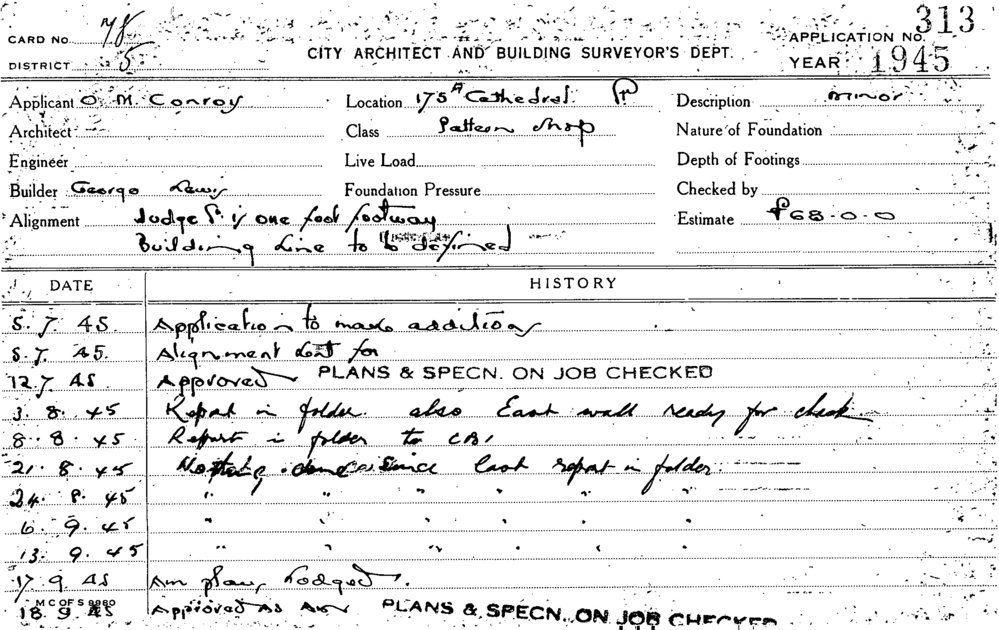 CARD No. 78
DISTRICT 5
CITY ARCHITECT AND BUILDING SURVEYOR'S DEPT.
APPLICATION NO. 313
YEAR 1945
Applicant O. M. Conroy
Location 175A Cathedral
Description minor
Architect
Class Pattern shop
Nature of Foundation
Engineer
Live Load
Depth of Footings
Builder George Lewis
Foundation Pressure
Checked by
Alignment Judge is one foot footway
Estimate £68.0.0
Building Line to be defined
DATE HISTORY
5. 7. 45 Application to make additions
5. 7. 45. Alignment for
12.7. 45 Approved PLANS & SPECN. ON JOB CHECKED
3. 8. 45 Report in folder. also East wall ready for check
8. 8. 45 Report in folder to
21. 8. 45 Nothing done since last report in folder
24. 8. 45 " " " " " "
6. 9. 45 " " " " " "
13. 9. 45 " " " " " "
17. 9. 45 Am plans Lodged.
M C OF S 9980
18 9 45 Approved as Am PLANS & SPECN. ON JOB CHECKED